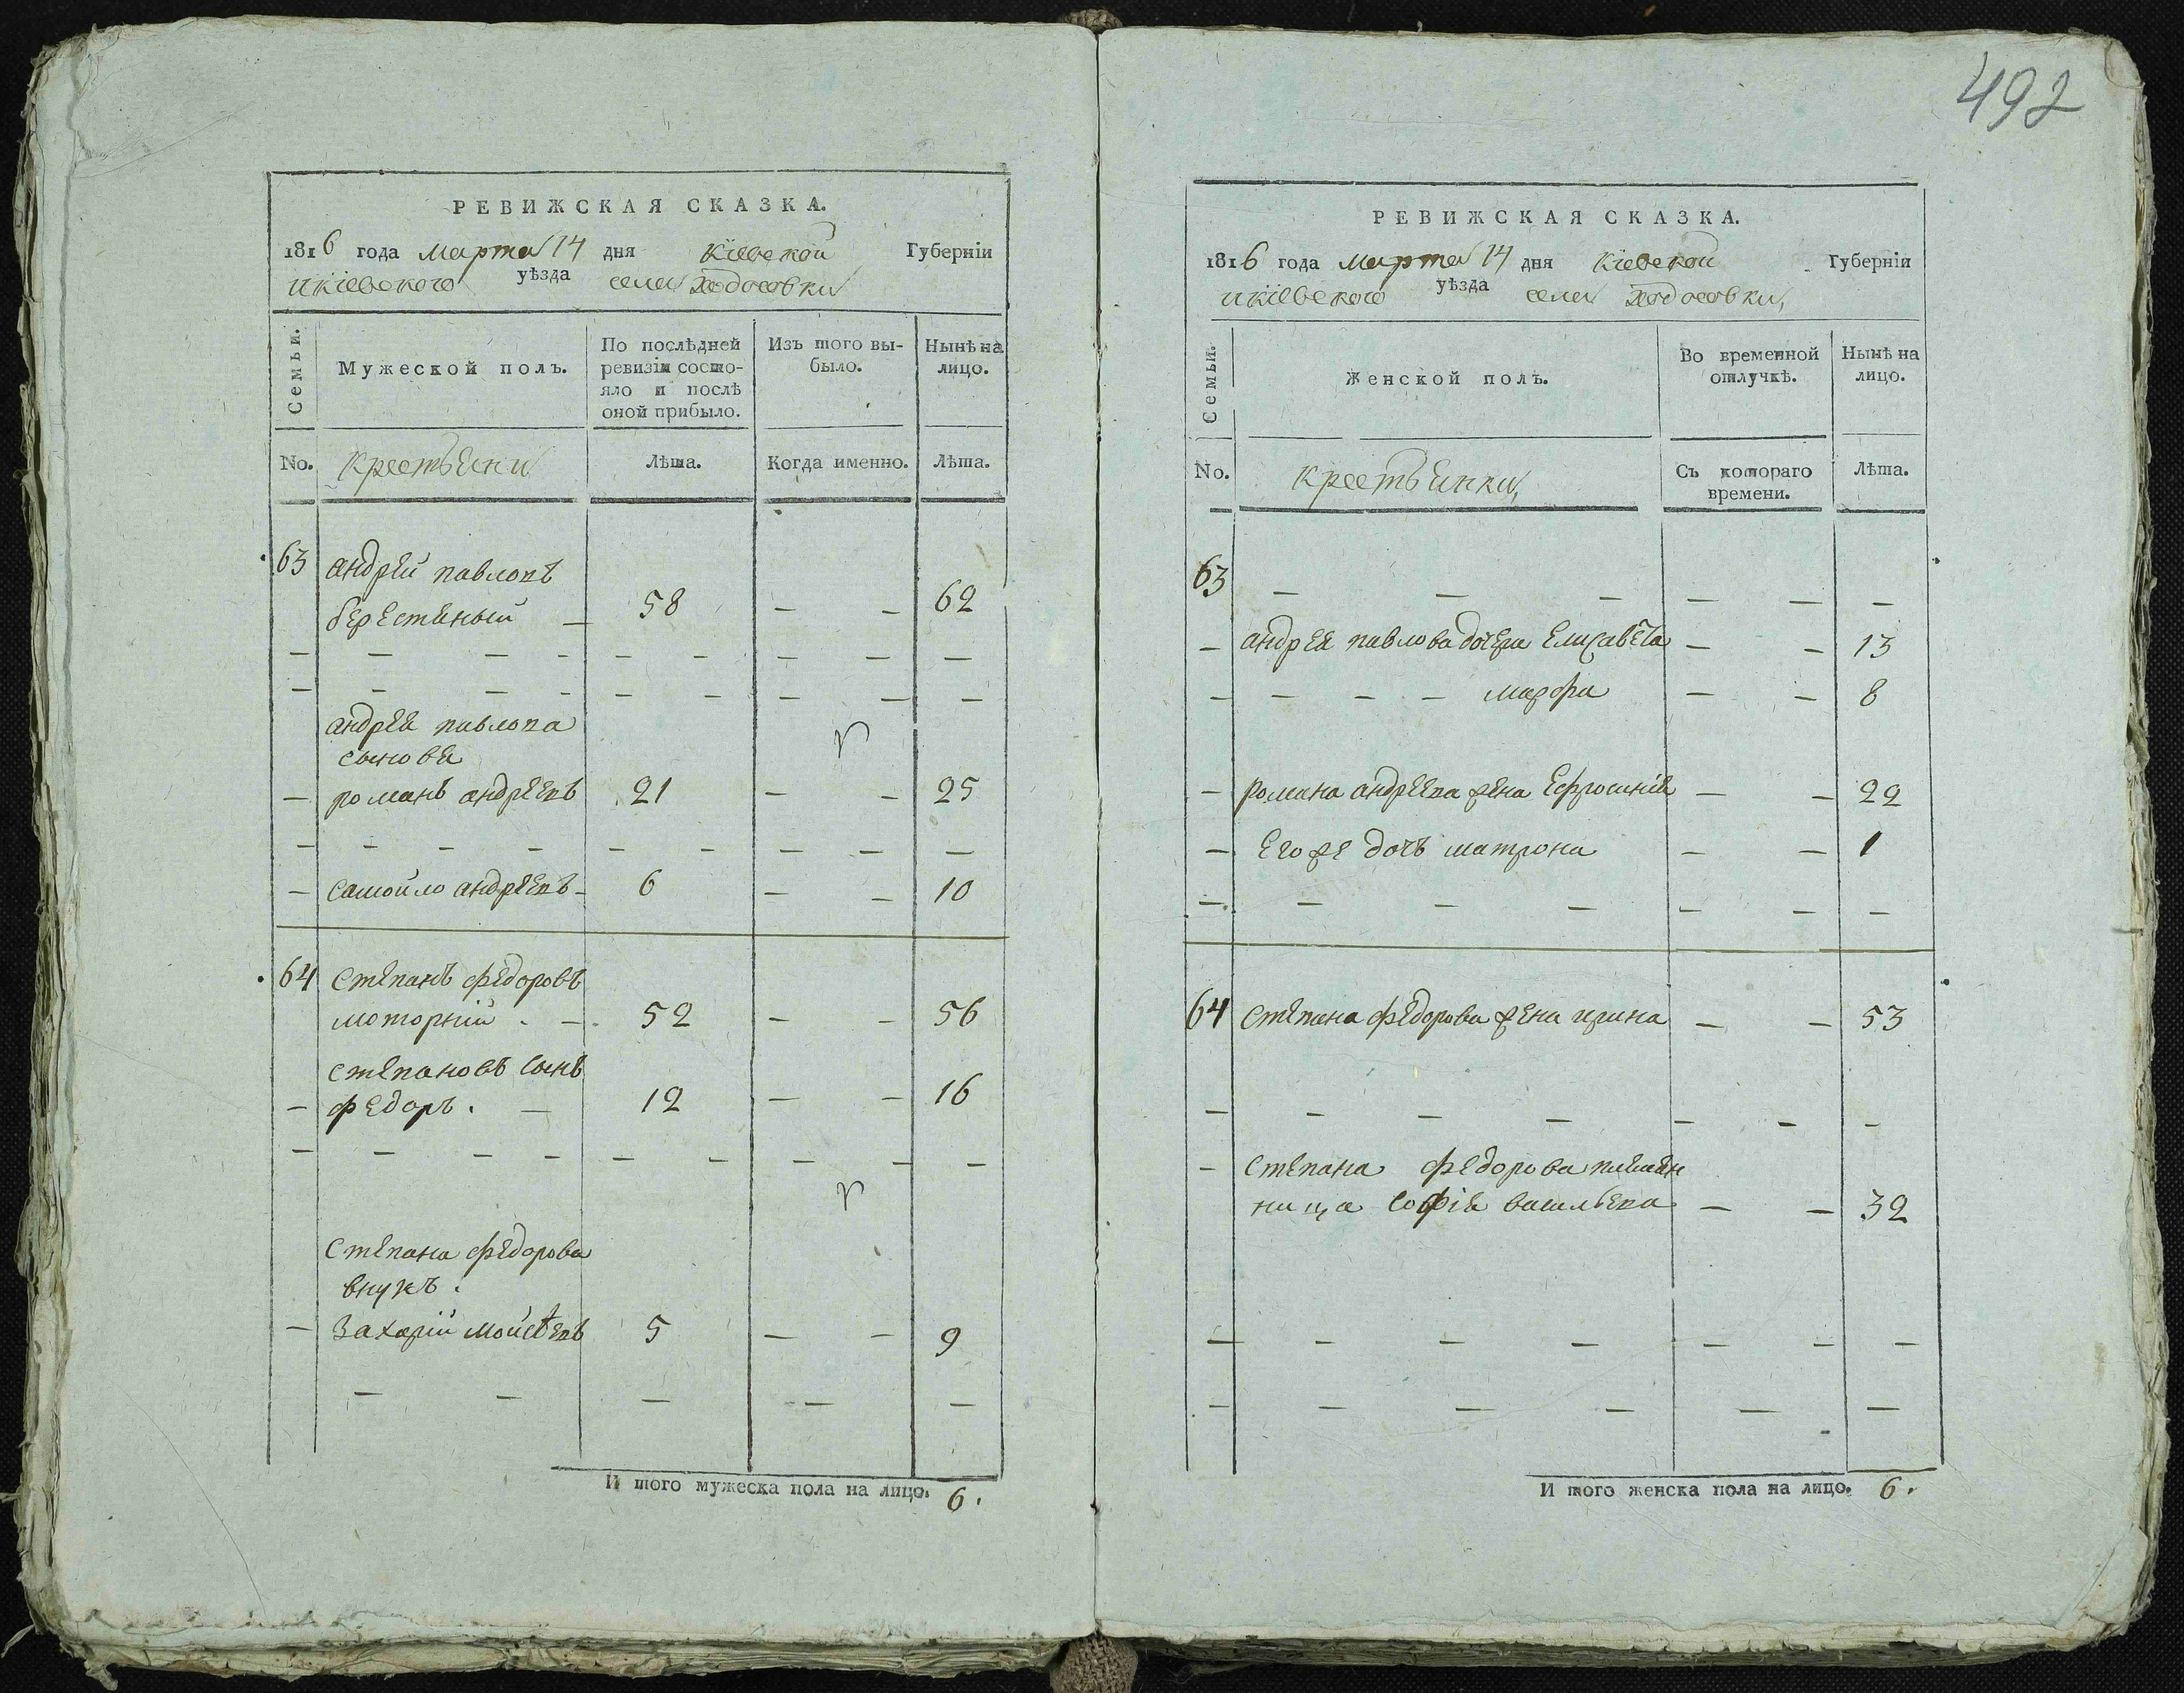 492
РЕВИЖСКАЯ СКАЗКА.
1816 года марта 14 дня Кіевской Губерніи
и кіевского уѣзда села Ходосовки
Семьи.
Мужеской полъ.
По послѣдней ревизіи состо-
яло и послѣ
оной прибыло.
Изъ того вы-
было.
Нынѣ на
лицо.
No. крестьяни Лѣта. Когда именно. Лѣта.
63 андрей павловъ
берестяный — 58 — — 62
— — — — — — — — —
— — — — — — — — —
андрея павлова
сыновя
— романъ андреевъ 21 — — 25
— — — — — — — — —
— самойло андреевъ — 6 — — 10
64 степанъ федоровъ
моторній . — 52 — — 56
степановъ сынъ
— федоръ . — 12 — — 16
— — — — — — — — —
степана федорова
внукъ .
— Захарій мойсѣевъ 5 — — 9
— — — — —
И того мужеска пола на лицо. 6.
РЕВИЖСКАЯ СКАЗКА.
1816 года марта 14 дня Кіевской Губерніи
и кіевского уѣзда села Ходосовки,
Семьи.
Женской полъ.
Во временной
отлучкѣ.
Нынѣ на
лицо.
No. крестьянки, Съ котораго
времени. Лѣта.
63 — — — — — —
— андрея павлова дочери Елисавета — — 13
— — — — марфа — — 8
— романа андреева жена Ефросинія — — 22
— Его же дочъ матрона — — 1
— — — — — — —
64 степана федорова жена ирина — — 53
— — — — — — —
— степана федорова племян
ница софія васильева — — 32
— — — — — — —
— — — — — —
И того женска пола на лицо. 6.